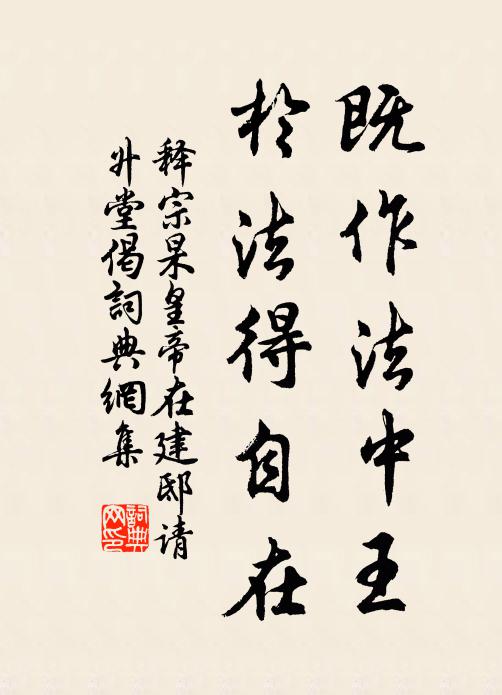 既作法中王
於法得自在
释宗杲皇帝在建邸请
升堂偈詞典網集
詞典网印